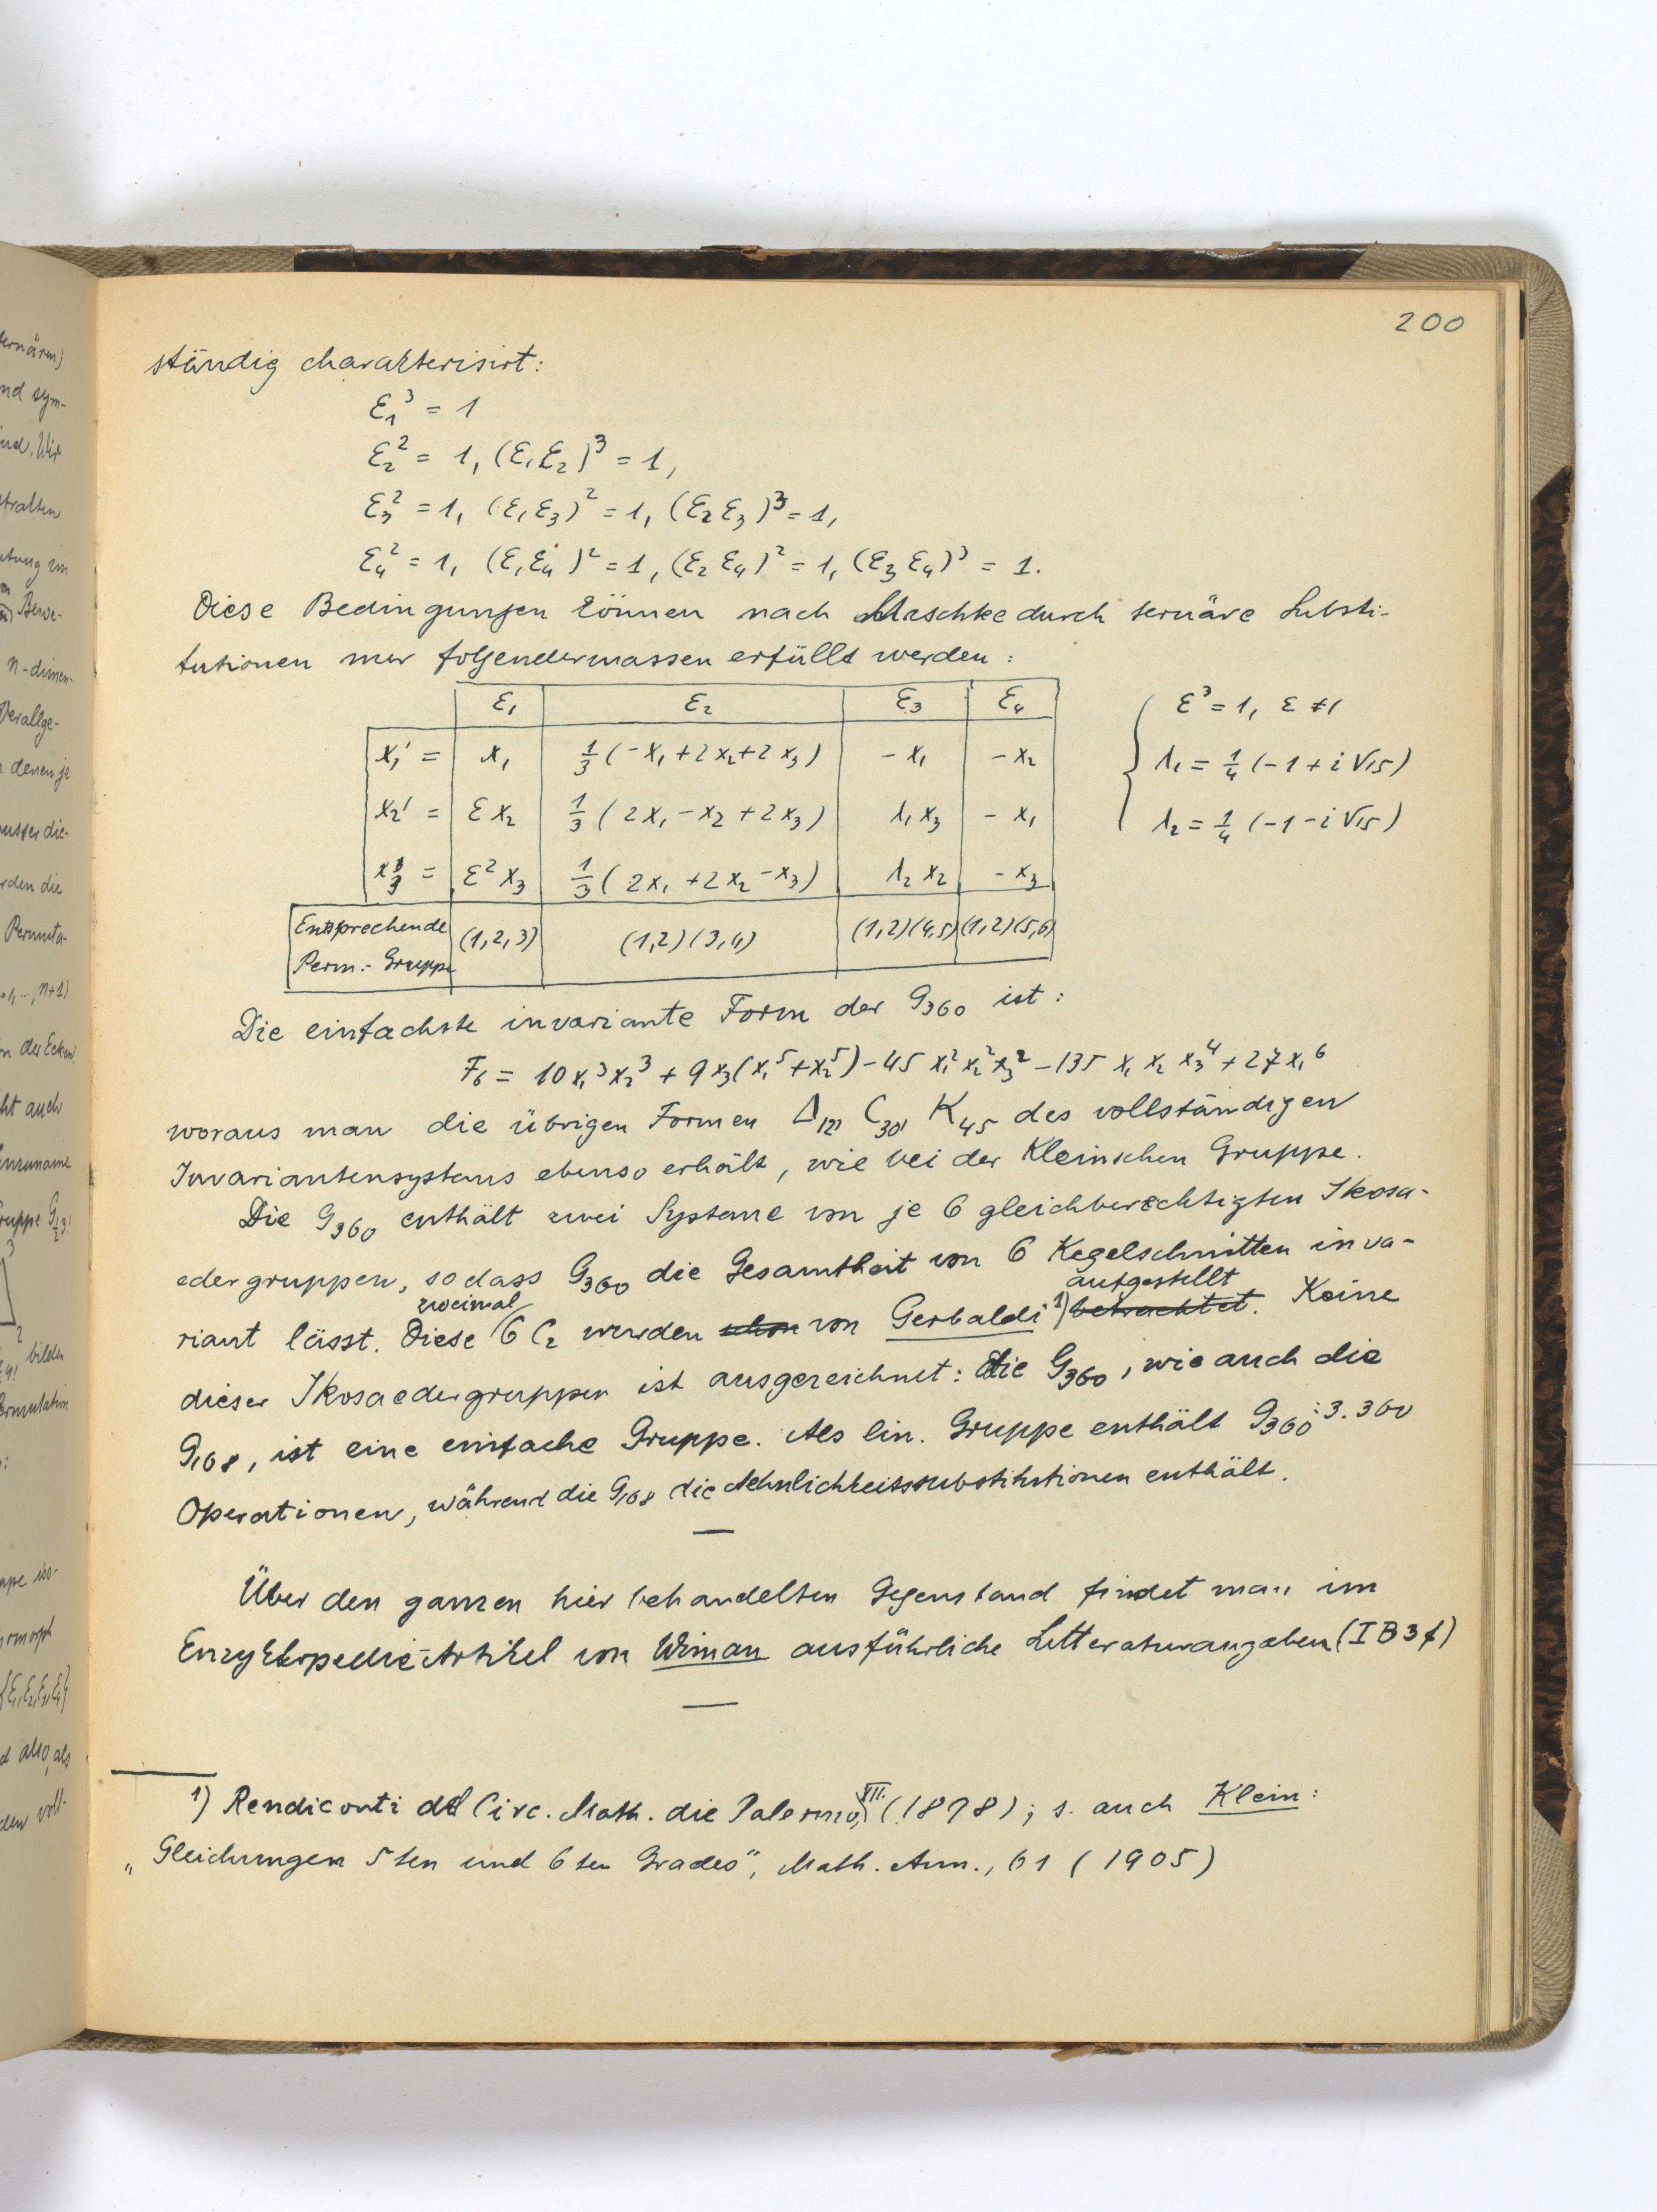 200
ständig charakterisirt:
ε₁³ = 1
ε₂² = 1, (ε₁ε₂)³ = 1,
ε₃² = 1, (ε₁ε₃)² = 1, (ε₂ε₃)³ = 1,
ε₄² = 1, (ε₁ε₄)² = 1, (ε₂ε₄)² = 1, (ε₃ε₄)³ = 1.
Diese Bedingungen können nach Maschke durch ternäre Substi-
tutionen nur folgendermassen erfüllt werden:
ε₁ ε₂ ε₃ ε₄
x₁' = x₁ 1/3 (-x₁+2x₂+2x₃) -x₁ -x₂
x₂' = εx₂ 1/3 (2x₁-x₂+2x₃) λ₁x₃ -x₁
x₃' = ε²x₃ 1/3 (2x₁+2x₂-x₃) λ₂x₂ -x₃
Entsprechende
Perm.-Gruppe (1,2,3) (1,2)(3,4) (1,2)(4,5) (1,2)(5,6)
ε³ = 1, ε ≠ 1
λ₁ = 1/4 (-1 + i√15)
λ₂ = 1/4 (-1 - i√15)
Die einfachste invariante Form der G₃₆₀ ist:
F₆ = 10x₁³x₂³ + 9x₃(x₁⁵+x₂⁵) - 45x₁²x₂²x₃² - 135x₁x₂x₃⁴ + 27x₁⁶
woraus man die übrigen Formen Δ₁₂, C₃₀, K₄₅ des vollständigen
Invariantensystems ebenso erhält, wie bei der Kleinschen Gruppe.
Die G₃₆₀ enthält zwei Systeme von je 6 gleichberechtigten Ikosa-
edergruppen, sodass G₃₆₀ die Gesamtheit von 6 Kegelschnitten inva-
riant lässt. Diese zweimal 6 C₂ wurden schon von Gerbaldi ¹) betrachtet aufgestellt. Keine
dieser Ikosaedergruppen ist ausgezeichnet: die G₃₆₀, wie auch die
G₁₆₈, ist eine einfache Gruppe. Als lin. Gruppe enthält G₃₆₀: 3.360
Operationen, während die G₁₆₈ die Aehnlichkeitssubstitutionen enthält.
Über den ganzen hier behandelten Gegenstand findet man im
Enzyklopedie-Artikel von Wiman ausführliche Litteraturangaben (I B 3 f)
1) Rendiconti del Circ. Math. die Palermo, VII. (1898); s. auch Klein:
„Gleichungen 5ten und 6ten Grades", Math. Ann., 61 (1905)